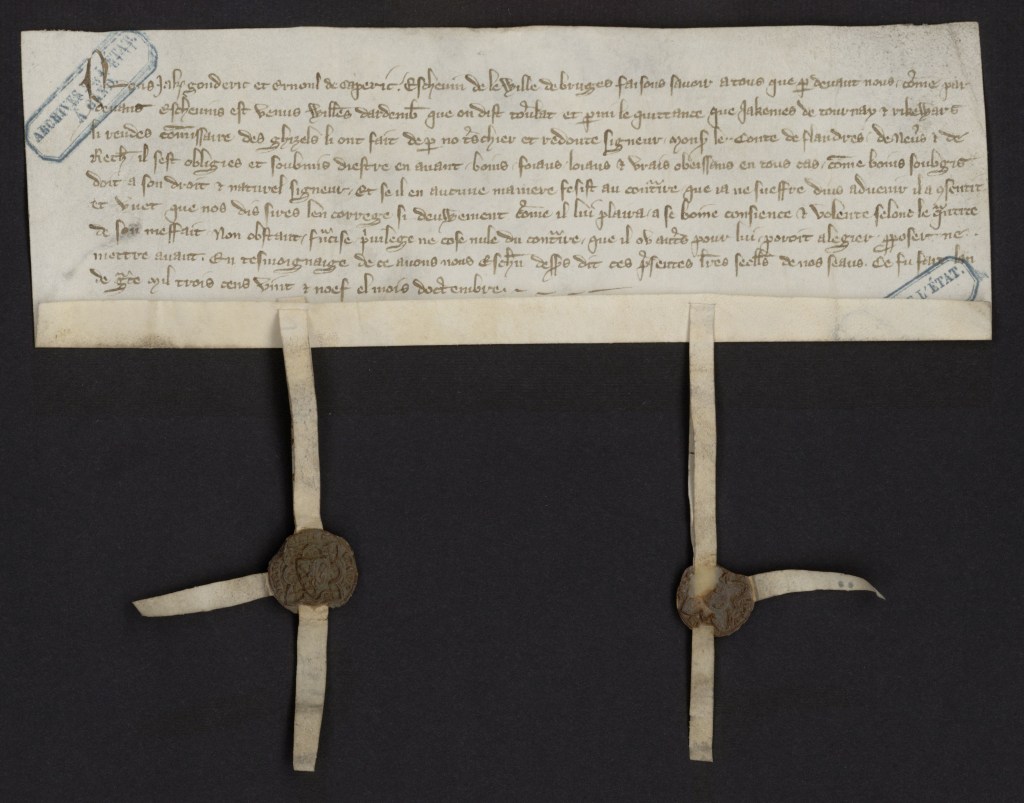 ARCHIVES DE L'ÉTAT
A GAND
Nous Jakes gonderic et Ernoul de caperic. Eschevin de le Ville de bruges faisons savoir a tous que par devant nous, come par
devant Eschevins est venus Willes dardemb que on dist et parmi le quittance que Jakemes de tournay & rikewars
li reudes comissaire des ghizels li ont fait de p no tschier et redoute signeur monss le Conte de flandres, de Nevs & de
Reth il sest obligies et soubmis diestre en avant, boins, foiaus loiaus & vrais obeissans en tous cas, come boins soubgis
doit a son droit & naturel signeur, Et se il en aucune maniere fesist au contre que ia ne sueffre dius advenir il a osentit
et vuet que nos dis sires len corrige si deuwement come il lui plaira, a se boine consience & volente selonc le qtite
de son meffait Non obstant, franchise previlege ne cose nule du contre, que il ou autrs pour lui, poroit alegier pposer ne
mettre avant. En tesmoignaige de ce avons nous Eschn dess dit ces psentes lres seelles de nos seaus. Ce fu fait lan
de gce mil trois cens vint & noef el mois doctembre.
L'ÉTAT.